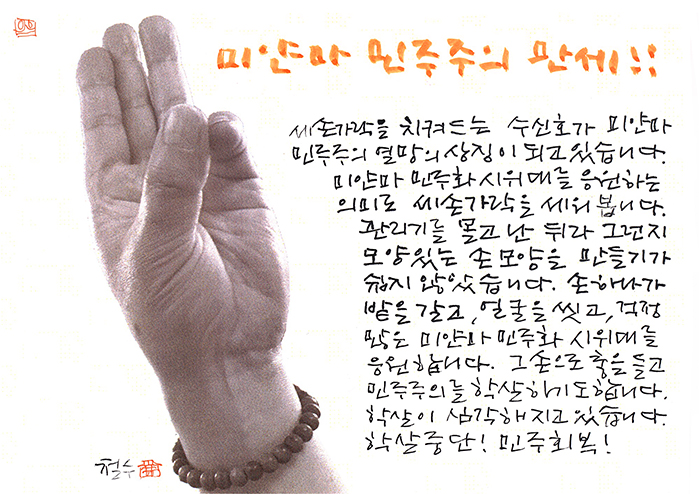 미얀마 민주주의 만세!!
세손가락을 치켜드는 수신호가 미얀마
민주주의 열망의 상징이 되고 있습니다.
미얀마 민주화 시위대를 응원하는
의미로 세손가락을 세워 봅니다.
관리기를 몰고 난 뒤라 그런지
모양있는 손모양을 만들기가
쉽지 않았습니다. 손하나가
밭을 갈고, 얼굴을 씻고, 걱정
많은 미얀마 민주화 시위대를
응원합니다. 그 손으로 총을 들고
민주주의를 학살하기도합니다.
학살이 심각해지고 있습니다.
학살중단! 민주회복!
철수